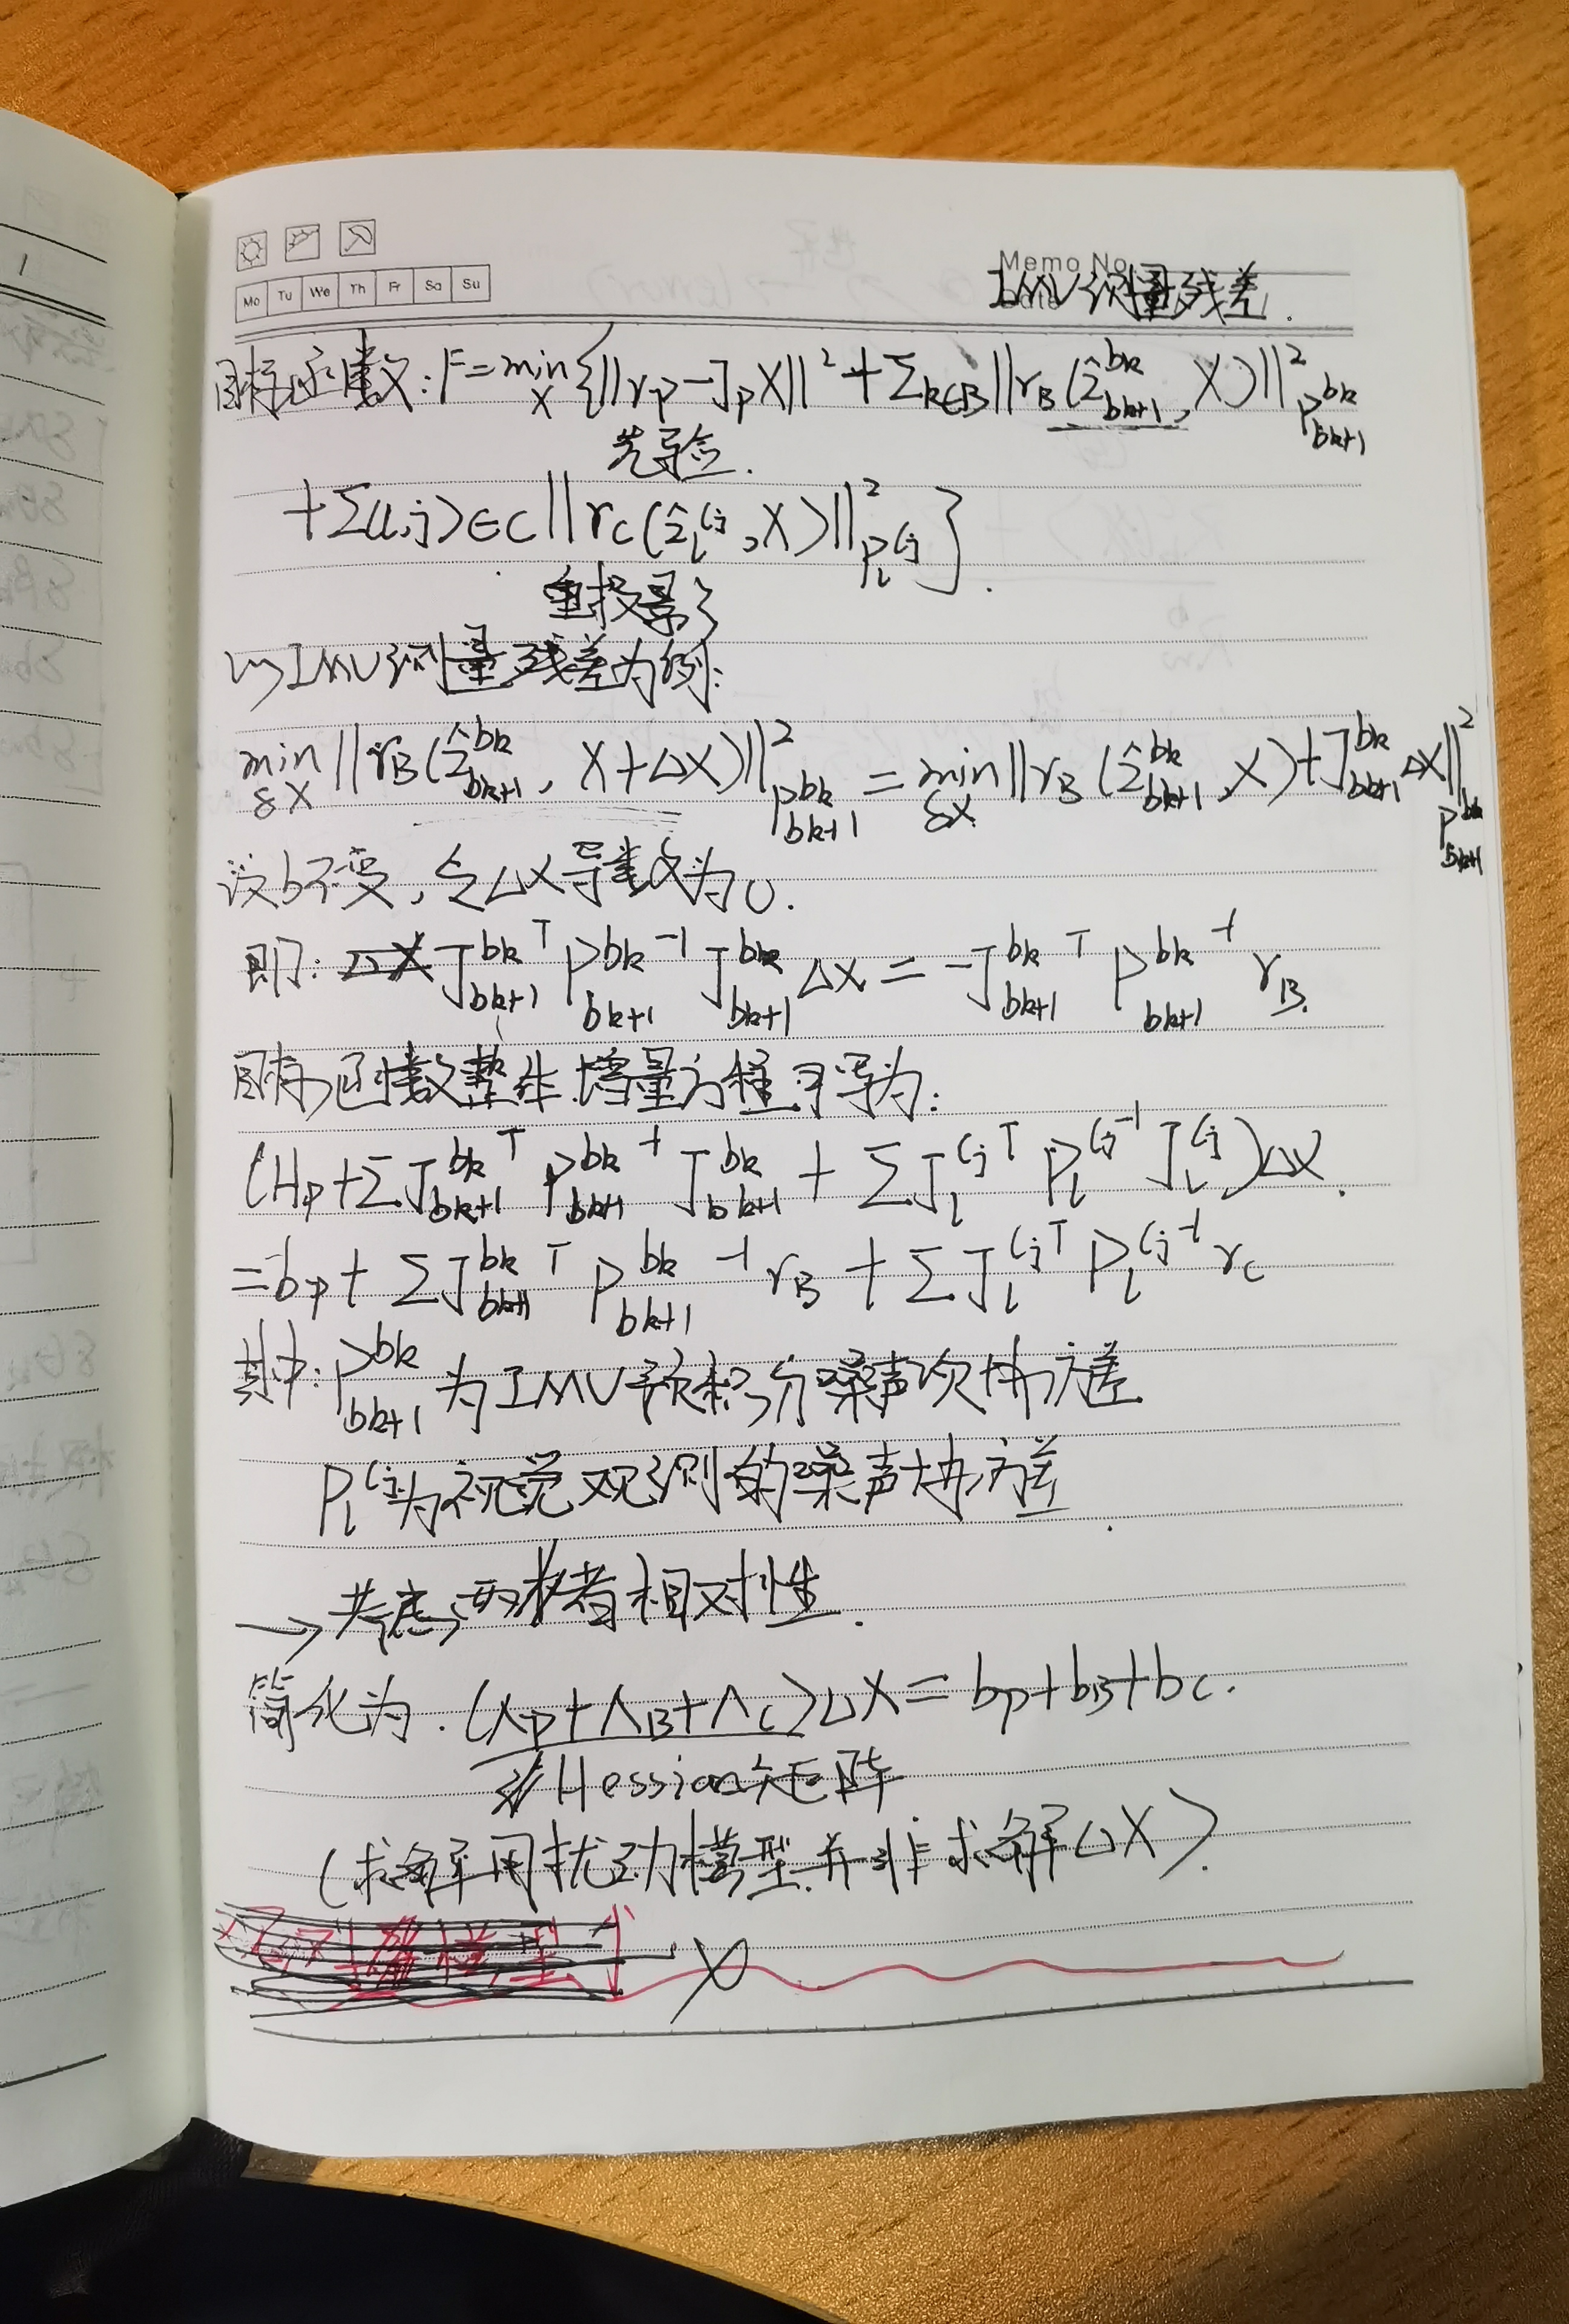 Memo No.
Mo Tu We Th Fr Sa Su
IMU测量残差.
目标函数: F = min_X {||r_p - J_p X||² + Σ_{k∈B} ||r_B(ẑ^{bk}_{bk+1}, X)||²_{P^{bk}_{bk+1}}
先验.
+ Σ(l,j)∈C ||r_C(ẑ_l^{Cj}, X)||²_{P_l^{Cj}}}.
重投影
以IMU测量残差为例:
min_{δX} ||r_B(ẑ^{bk}_{bk+1}, X+ΔX)||²_{P^{bk}_{bk+1}} = min_{δX} ||r_B(ẑ^{bk}_{bk+1}, X) + J^{bk}_{bk+1} ΔX||²_{P^{bk}_{bk+1}}
设b不变, 令ΔX导数为0.
即: J^{bk T}_{bk+1} P^{bk -1}_{bk+1} J^{bk}_{bk+1} Δx = -J^{bk T}_{bk+1} P^{bk -1}_{bk+1} r_B.
目标函数整体增量方程可写为:
(H_p + Σ J^{bk T}_{bk+1} P^{bk -1}_{bk+1} J^{bk}_{bk+1} + Σ J_l^{Cj T} P_l^{Cj -1} J_l^{Cj})ΔX.
= b_p + Σ J^{bk T}_{bk+1} P^{bk -1}_{bk+1} r_B + Σ J_l^{Cj T} P_l^{Cj -1} r_C
其中: P^{bk}_{bk+1} 为IMU预积分噪声项协方差
P_l^{Cj} 为视觉观测的噪声协方差.
→考虑两者相对性.
简化为. (Λ_P + Λ_B + Λ_C)ΔX = b_P + b_B + b_C.
Hession矩阵
(求解用扰动模型并非求解ΔX).